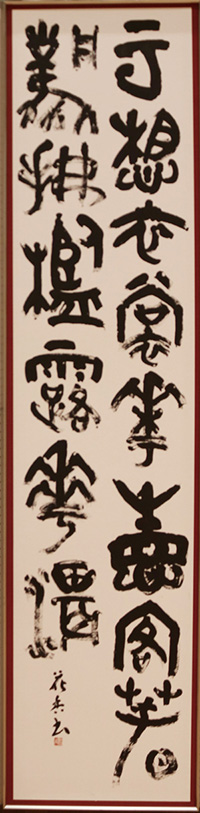 云想衣裳華想容春
風拂檻露華濃
書